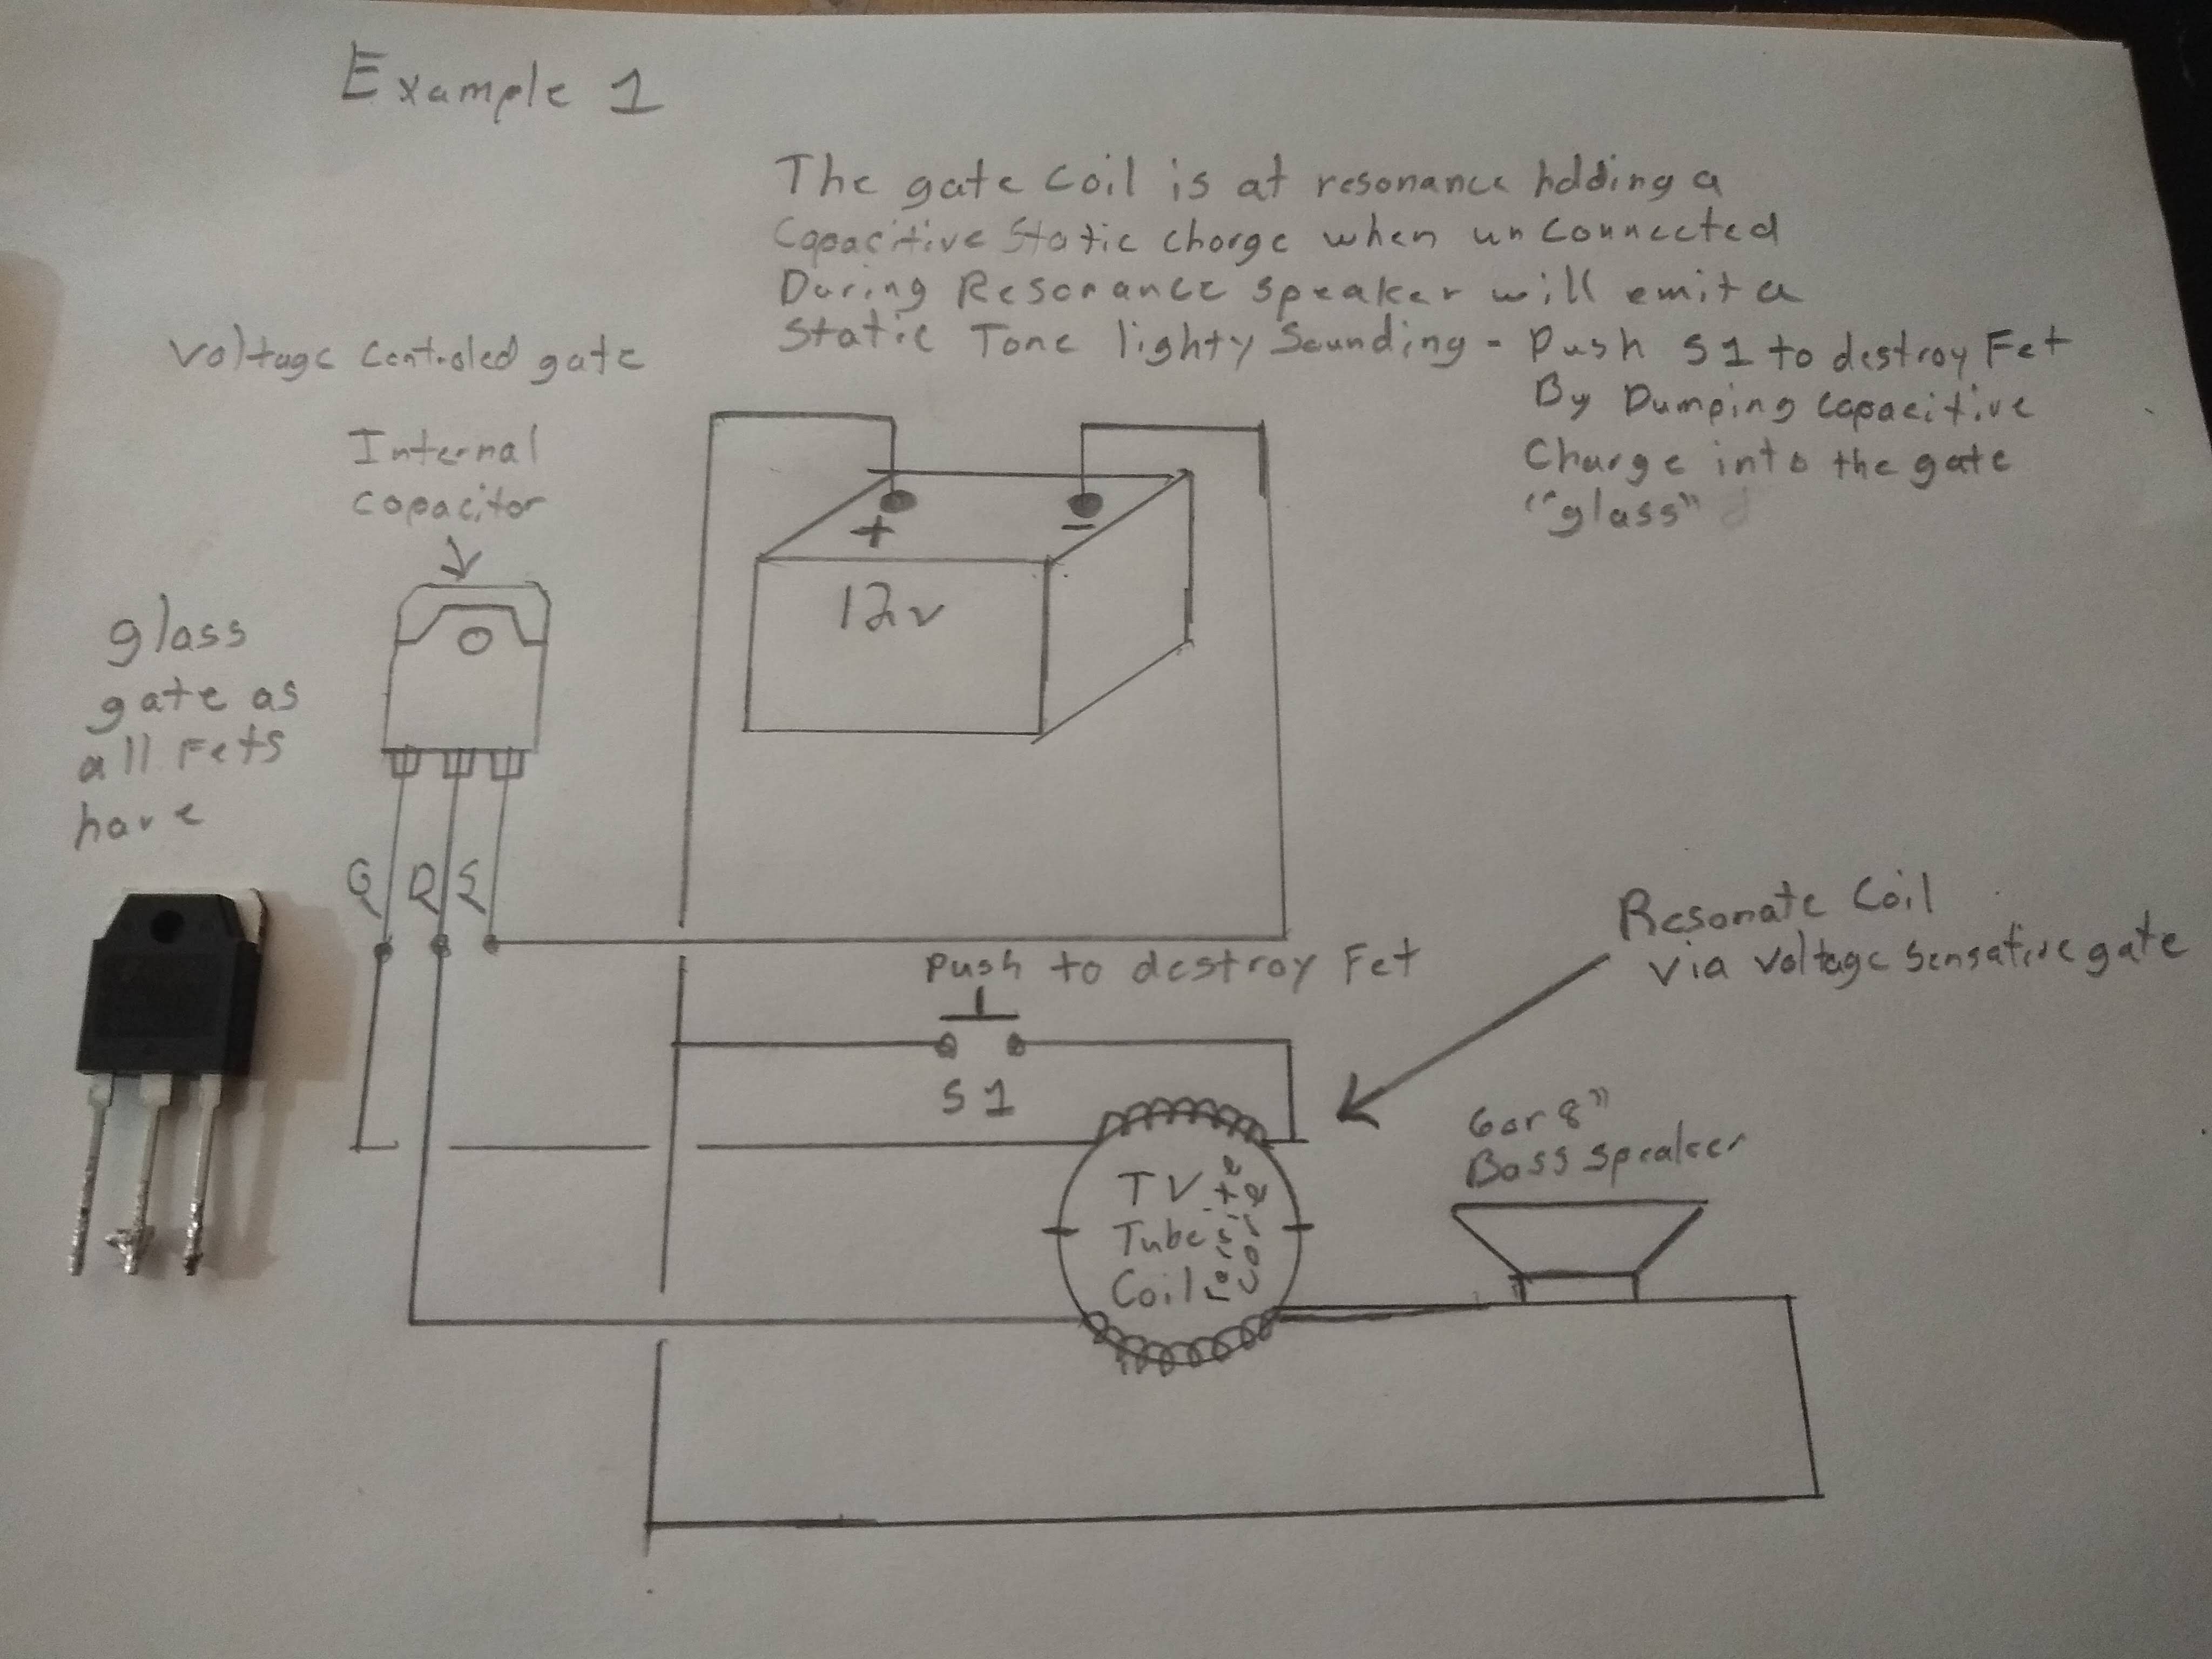 Example 1
The gate coil is at resonance holding a
Capacitive Static charge when unconnected
During Resonance speaker will emit a
Static Tone lighty Sounding - Push S1 to destroy Fet
By Dumping capacitive
Charge into the gate
"glass"
Voltage Controled gate
Internal
capacitor
glass
gate as
all Fets
have
+
-
12v
G D S
Push to destroy Fet
S1
Resonate Coil
via voltage Sensative gate
6 or 8"
Bass speaker
TV
Tube
Coil
Ferrite
core